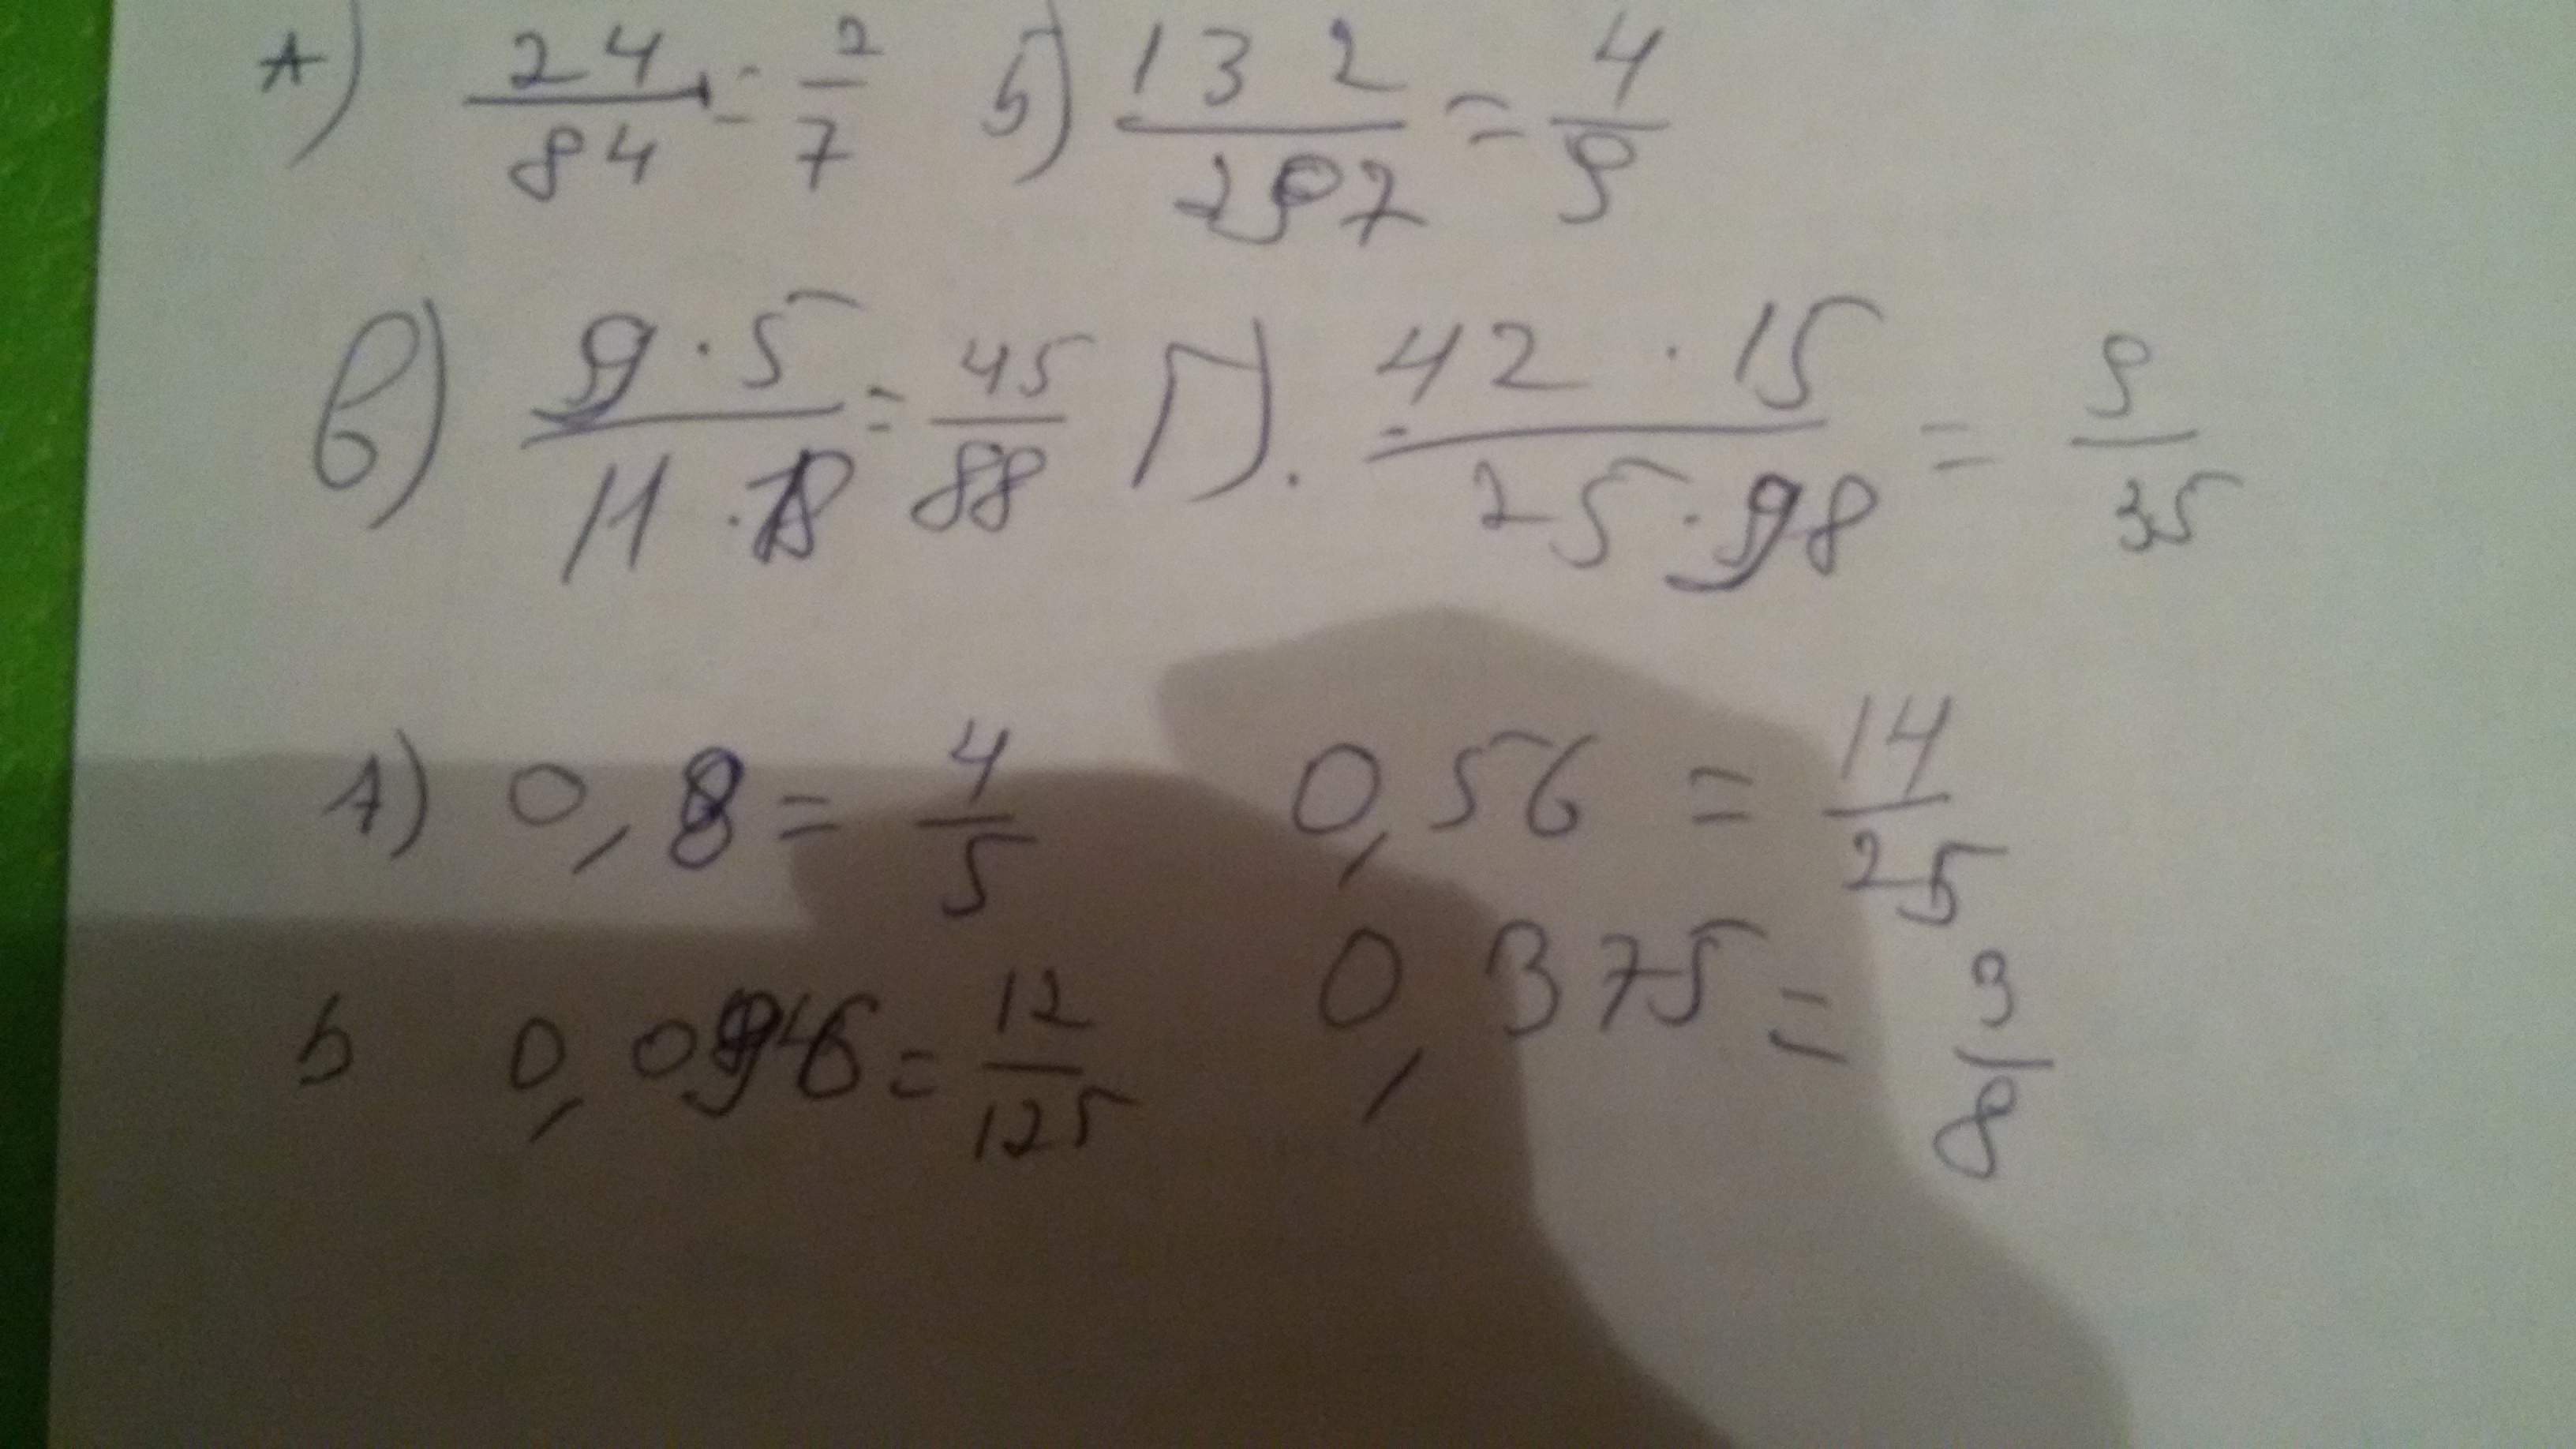 А) 24/84 = 2/7 б) 132/297 = 4/9
В) 9·5/11·8 = 45/88 Г). 42·15/25·98 = 9/35
А) 0,8 = 4/5 0,56 = 14/25
б 0,096 = 12/125 0,375 = 3/8